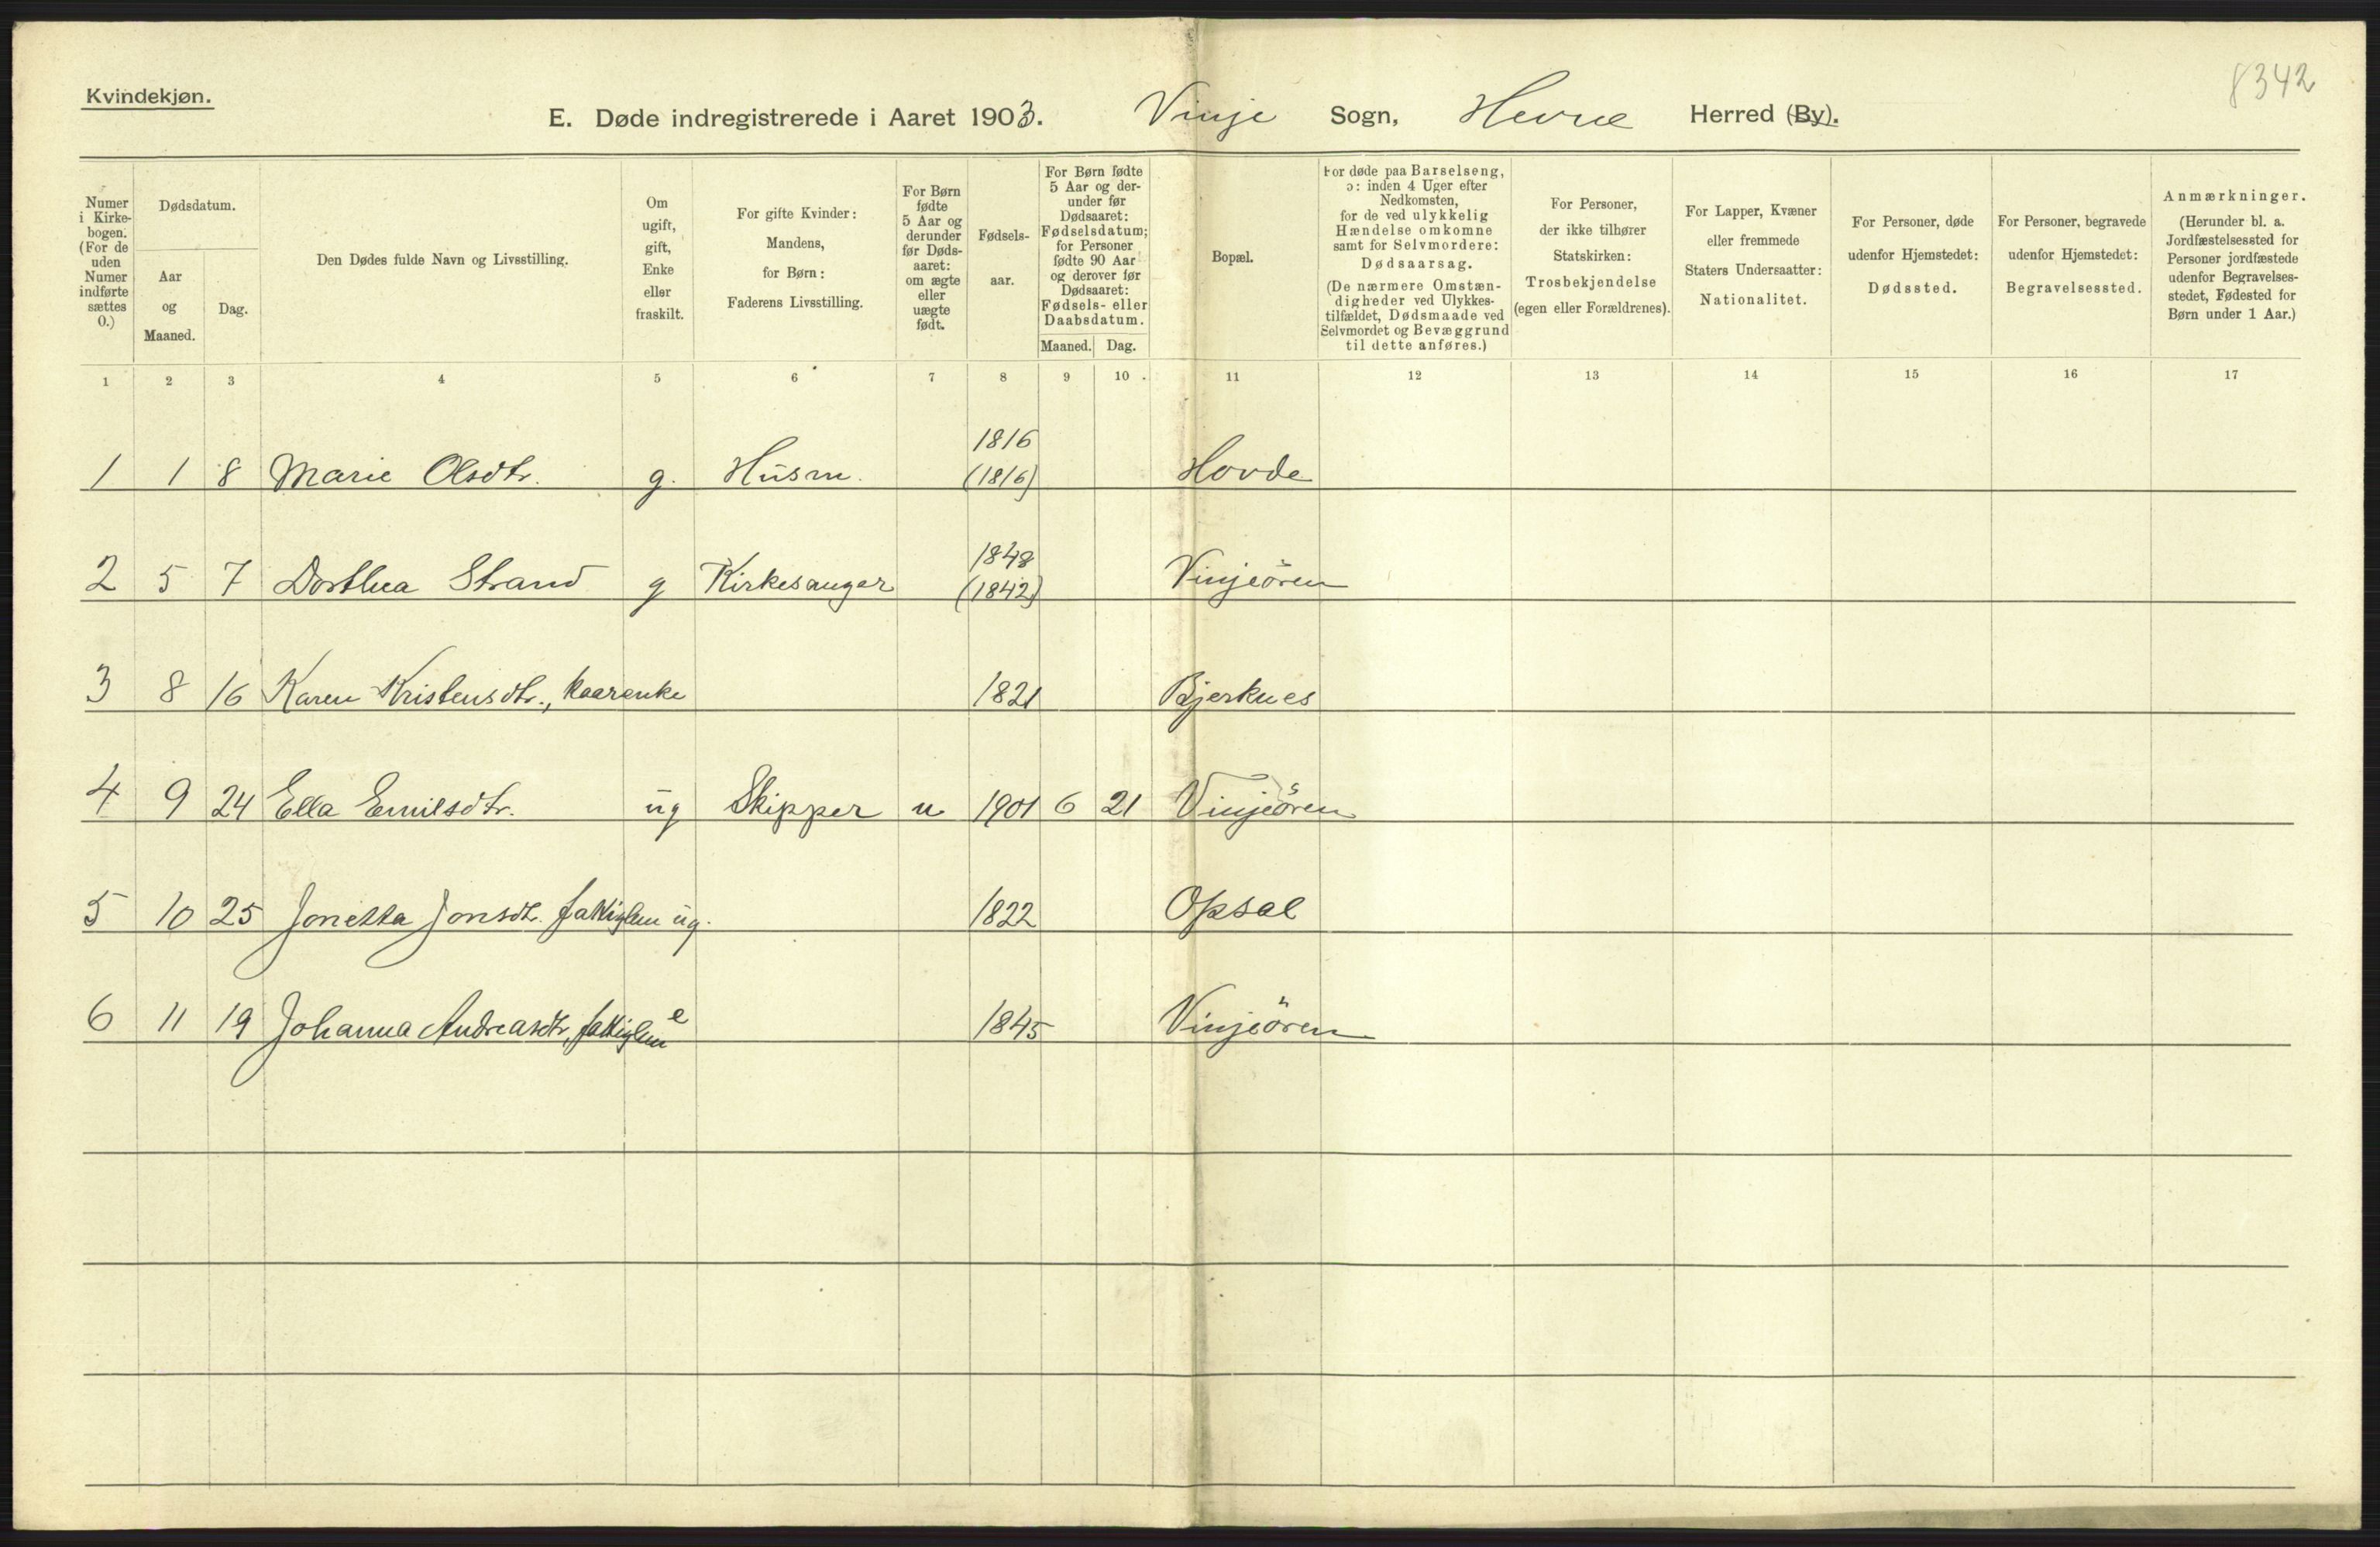 8342
Kvindekjøn.
E. Døde indregistrerede i Aaret 1903. Vinje Sogn, Hevne Herred (By).
Numer i Kirkebogen. (For de uden Numer indførte sættes 0.)
Dødsdatum.
Aar og Maaned.
Dag.
Den Dødes fulde Navn og Livsstilling.
Om ugift, gift, Enke eller fraskilt.
For gifte Kvinder: Mandens, for Børn: Faderens Livsstilling.
For Børn fødte 5 Aar og derunder før Dødsaaret: om ægte eller uægte født.
Fødselsaar.
For Børn fødte 5 Aar og derunder før Dødsaaret: Fødselsdatum; for Personer fødte 90 Aar og derover før Dødsaaret: Fødsels- eller Daabsdatum.
Maaned. Dag.
Bopæl.
For døde paa Barselseng, ɔ: inden 4 Uger efter Nedkomsten, for de ved ulykkelig Hændelse omkomne samt for Selvmordere: Dødsaarsag. (De nærmere Omstændigheder ved Ulykkestilfældet, Dødsmaade ved Selvmordet og Bevæggrund til dette anføres.)
For Personer, der ikke tilhører Statskirken: Trosbekjendelse (egen eller Forældrenes).
For Lapper, Kvæner eller fremmede Staters Undersaatter: Nationalitet.
For Personer, døde udenfor Hjemstedet: Dødssted.
For Personer, begravede udenfor Hjemstedet: Begravelsessted.
Anmærkninger. (Herunder bl. a. Jordfæstelsessted for Personer jordfæstede udenfor Begravelsesstedet, Fødested for Børn under 1 Aar.)
1 2 3 4 5 6 7 8 9 10 11 12 13 14 15 16 17
1816
1 1 8 Marie Olsdtr. g. Husm. (1816) Hovde
1848
2 5 7 Dorthea Strand g Kirkesanger (1842) Vinjeören
3 8 16 Karen Kristensdtr., kaarenke 1821 Bjerknes
4 9 24 Ella Emilsdtr. ug Skipper u 1901 6 21 Vinjeören
5 10 25 Jonetta Jonsdt. fattiglem ug. 1822 Opsal
6 11 19 Johanna Andreasdtr, fattiglem e 1845 Vinjeören